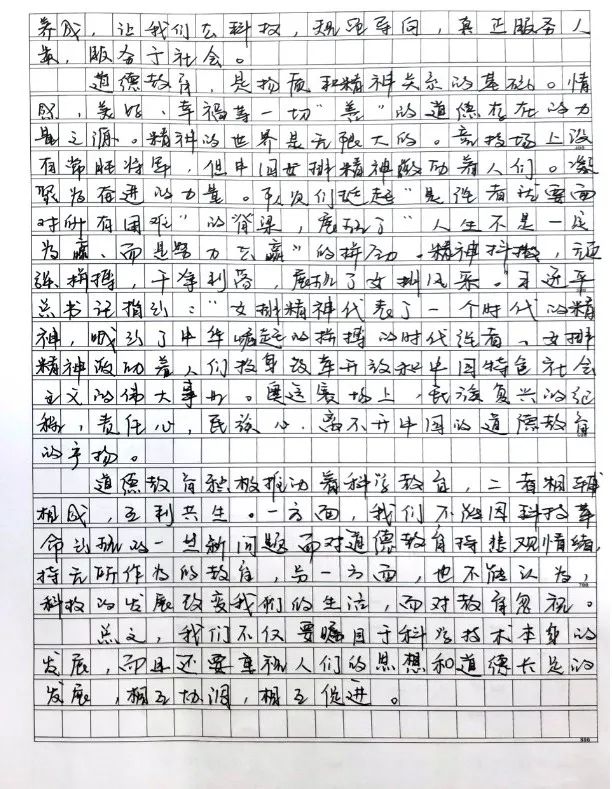 养成，让我们在科技，规范导向，真正服务人
类，服务于社会。
道德教育，是物质和精神关系的基础。情
熙，美好、幸福等一切“善”的道德存在的力
量之源。精神的世界是无限大的。竞技场上没
有常胜将军，但中国女排精神激动着人们。凝
聚为奋进的力量。队员们挺起“是强者就要面
对所有困难”的脊梁，展现了“人生不是一定
为赢、而是努力去赢”的拼劲。精神抖擞，顽
强拼搏，干净利落，展现了女排风采。习近平
总书记指引：“女排精神代表了一个时代的精
神，吼引了中华崛起的拼搏的时代强音。女排
精神激动着人们投身改革开放和中国特色社会
主义的伟大事业。奥运赛场上，民族复兴的征
程，责任心，民族心，离不开中国的道德教育
的产物。
道德教育积极推动着科学教育，二者相辅
相成，互利共生。一方面，我们不能因科技革
命出现的一些新问题而对道德教育持悲观情绪，
持无所作为的教育，另一方面，也不能认为，
科技的发展改变我们的生活，而对教育忽视。
总之，我们不仅要瞩目于科学技术本身的
发展，而且还要重视人们的思想和道德长足的
发展，相互协调，相互促进。
700
800